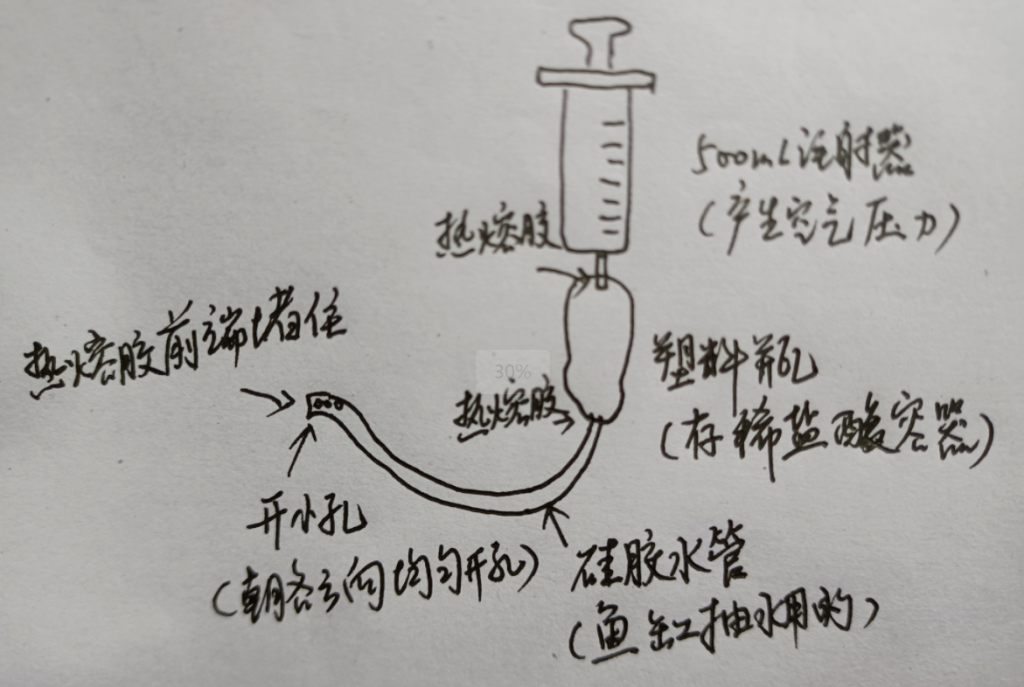 500mL注射器
(产生空气压力)
热熔胶
热熔胶前端堵住
30%
塑料瓶
热熔胶
(存稀盐酸容器)
开小孔
(朝各方向均匀开孔)
硅胶水管
(鱼缸抽水用的)